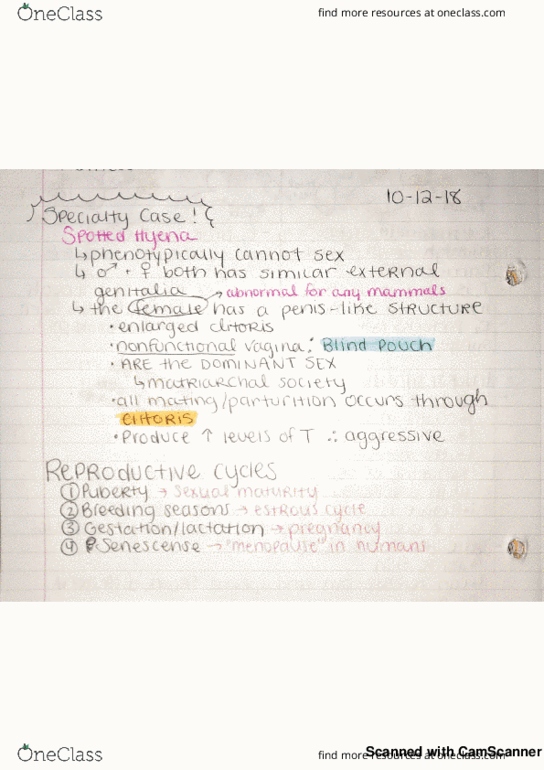 OneClass
find more resources at oneclass.com
10-12-18
Specialty Case!
Spotted Hyena
↳ phenotypically cannot sex
↳ ♂ + ♀ both has similar external
genitalia → abnormal for any mammals
↳ the female has a penis-like STRUCTURE
• enlarged clitoris
• nonfunctional vagina: Blind Pouch
• ARE the DOMINANT SEX
↳ matriarchal society
• all mating/parturition occurs through
clitoris
• Produce ↑ levels of T ∴ aggressive
REPRODUCTIVE cycles
① Puberty → sexual maturity
② Breeding seasons → estrous cycle
③ Gestation/lactation → pregnancy
④ Senescense → "menopause" in humans
OneClass
find more resources at oneclass.com
Scanned with CamScanner